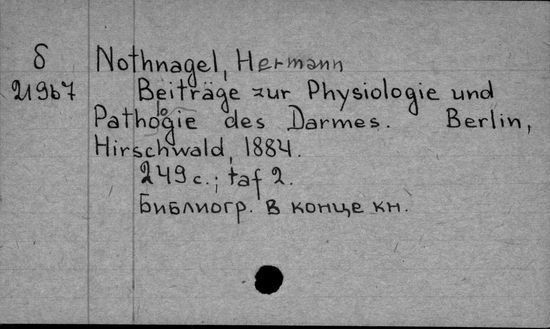 б Nothnagel, Hermann
21967 Beiträge zur Physiologie und
Pathologie des Darmes. Berlin,
Hirschwald, 1884.
249 с.; taf 2.
Библиогр. в конце кн.